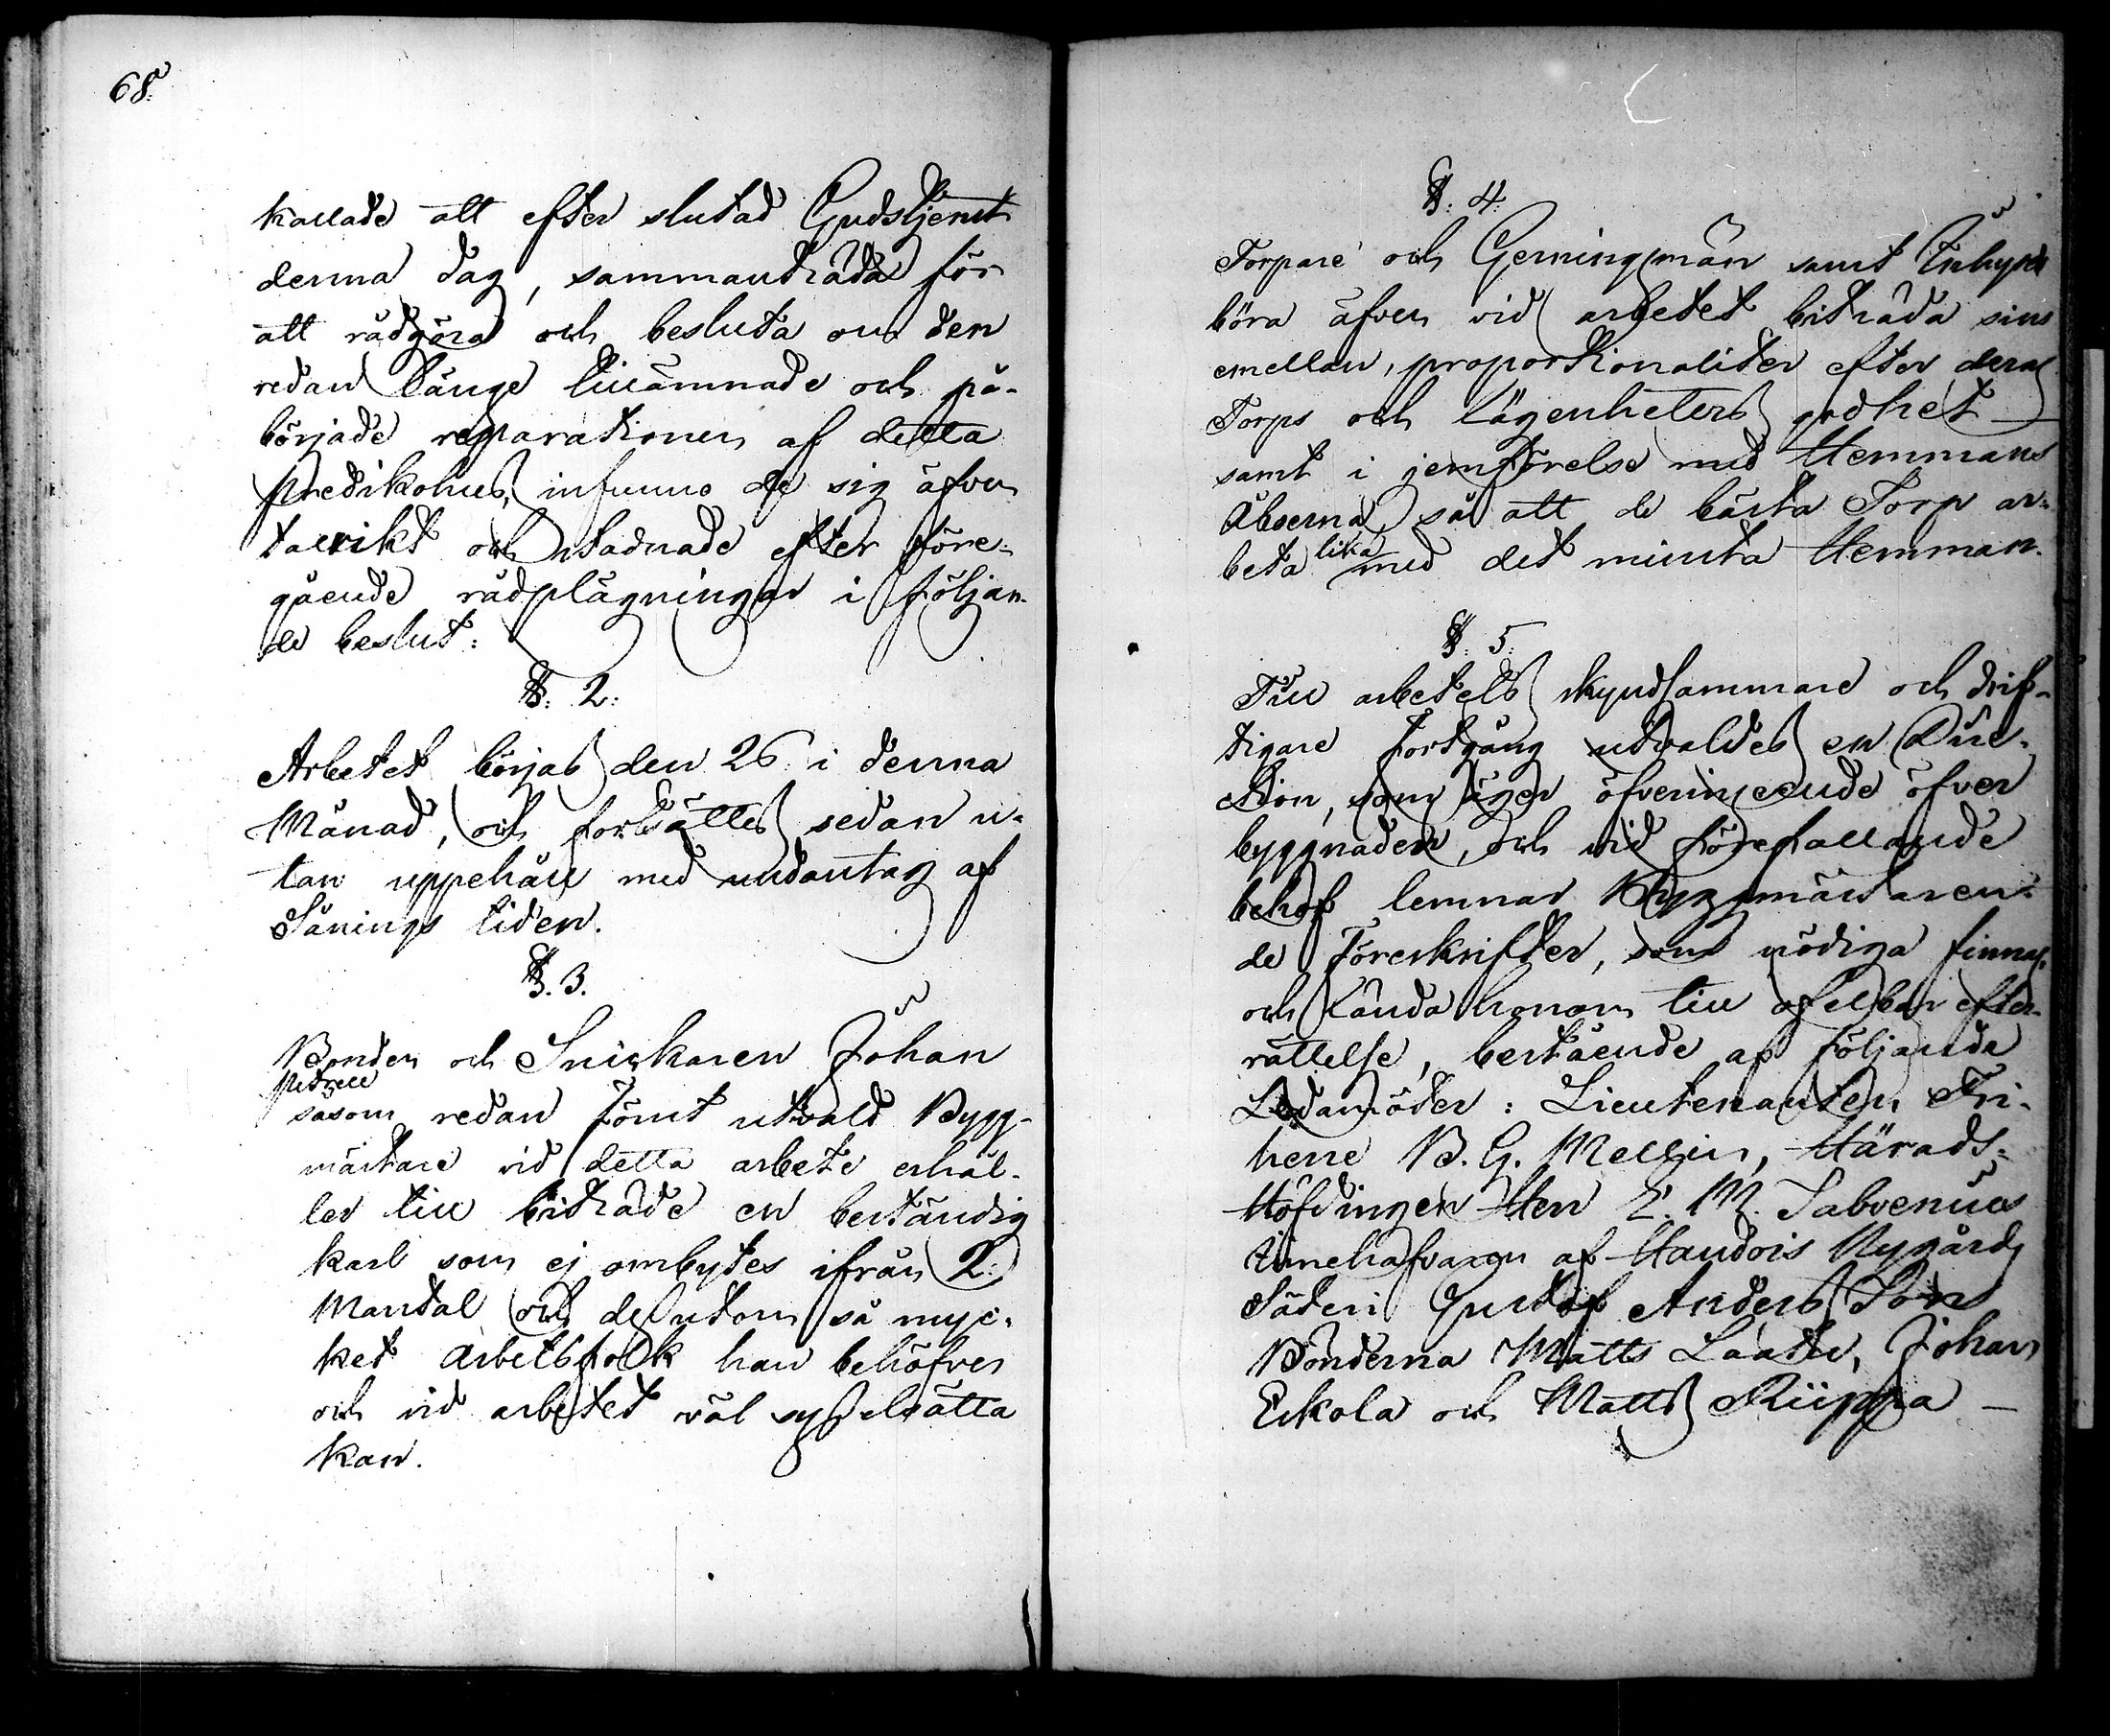 68.
kallade att efter slutad Gudstjenst
denna dag, sammanträda för
att rådgöra och besluta om den
redan länge tillämnade och på-
började reparationen af detta
predikohus, infunno de sig äfven
talrikt och stadnade efter före-
gående rådplägningar i följan-
de beslut:
§. 2.
Arbetet börjas den 26 i denna
Månad, och fortsättes sedan u-
tan uppehåll med undantag af
Sånings tiden.
§. 3.
Bonden och Snickaren Johan
Petrell
såsom redan förut utvald Bygg-
mästare vid detta arbete erhål-
ler till biträde en beständig
karl som ej ombytes ifrån 2:
Mantal och dessutom så myc-
ket arbetsfolk han behöfver
och vid arbetet väl sysselsätta
kan.
§. 4.
Torpare och Gerningsmän samt Inhyses
böra äfven vid arbetet biträda sins
emellan, proportionaliter efter deras
Torps och Lägenheters godhet
samt i jemförelse med Hemmans
Åboerna, så att de bästa Torp ar-
beta lika med det minsta Hemman.
§. 5.
Till arbetets skyndsammare och drif-
tigare fortgång utvaldes en Dire-
ktion, som äger öfverinseende öfver
byggnaden, och vid förefallande
behof lemnar Byggmästaren
de Föreskrifter, som nödiga finnas
och lända honom till ofelbar efter-
rättelse, bestående af följande
Ledamöter: Lieutenanten Fri-
herre B. G. Mellin, Härads-
Höfdingen Herr E. M.
Innehafvaren af Handois Nygårds
Säteri Gustaf Anders Son
Bönderna Matts Laato, Johan
Eskola och Matts Riippa